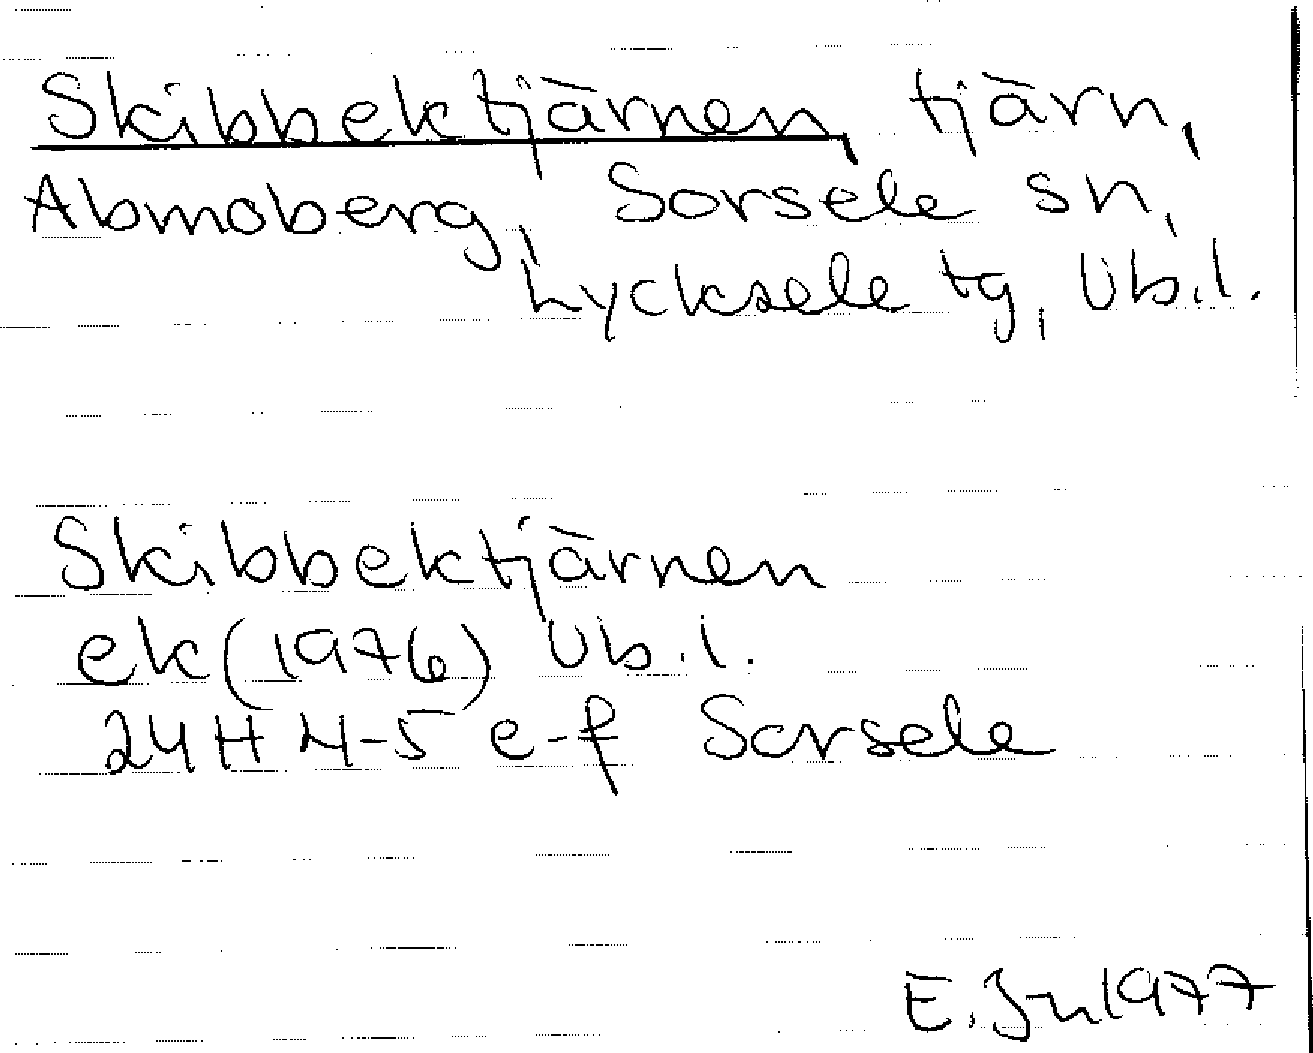 Skibbektjärnen, tjärn,
Abmoberg, Sorsele sn,
Lycksele tg, Vb.l.
Skibbektjärnen
ek (1976) Vb.l.
24H 4-5 e-f Sorsele
E. Jn 1977